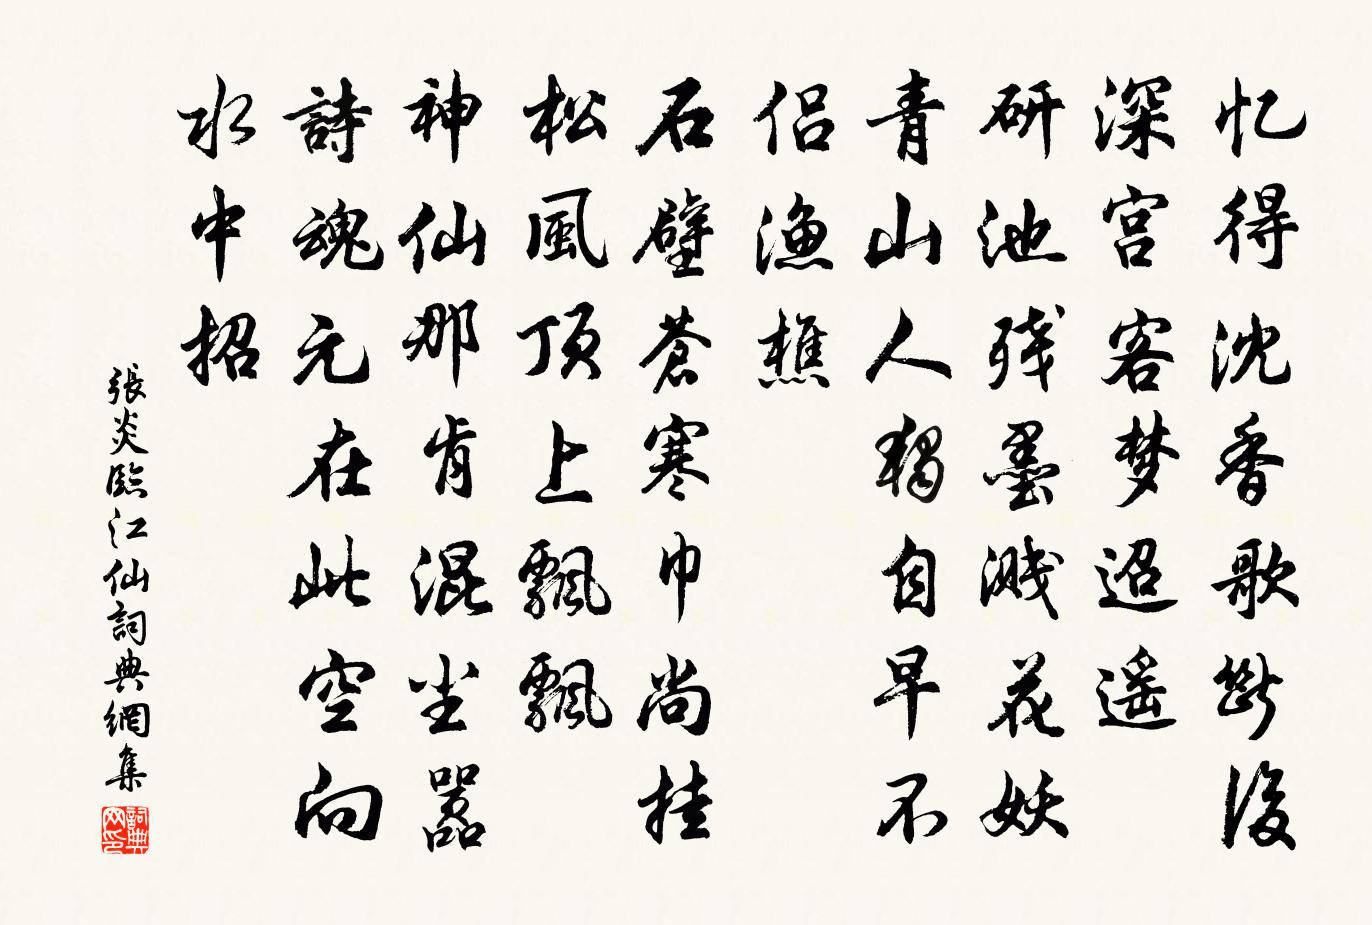 忆得沈香歌斷後
深宫客梦迢遥
研池残墨溅花妖
青山人獨自早不
侣渔樵
石壁蒼寒巾尚挂
松風顶上飄飄
神仙那肯混尘嚣
詩魂元在此空向
水中招
張炎臨江仙詞典網集
詞典网印